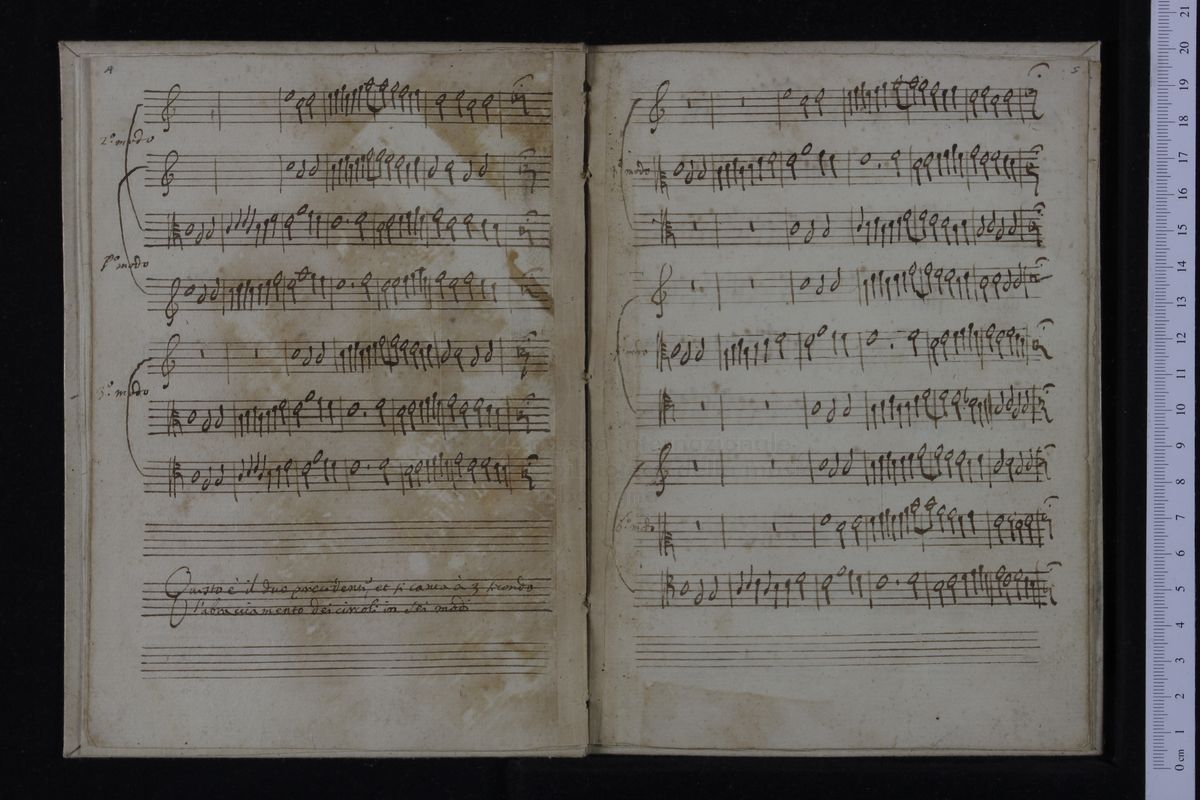 4
2º modo
pº modo
3º modo
Questo è il duo precedente et si canta à 3 secondo
l'abracciamento dei circoli in sei modi
5
modo
modo
6º modo
21
20
19
18
17
16
15
14
13
12
11
10
9
8
7
6
5
4
3
2
1
0 cm